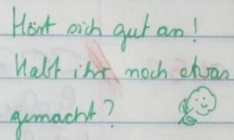 Hört sich gut an!
Habt ihr noch etwas
gemacht?